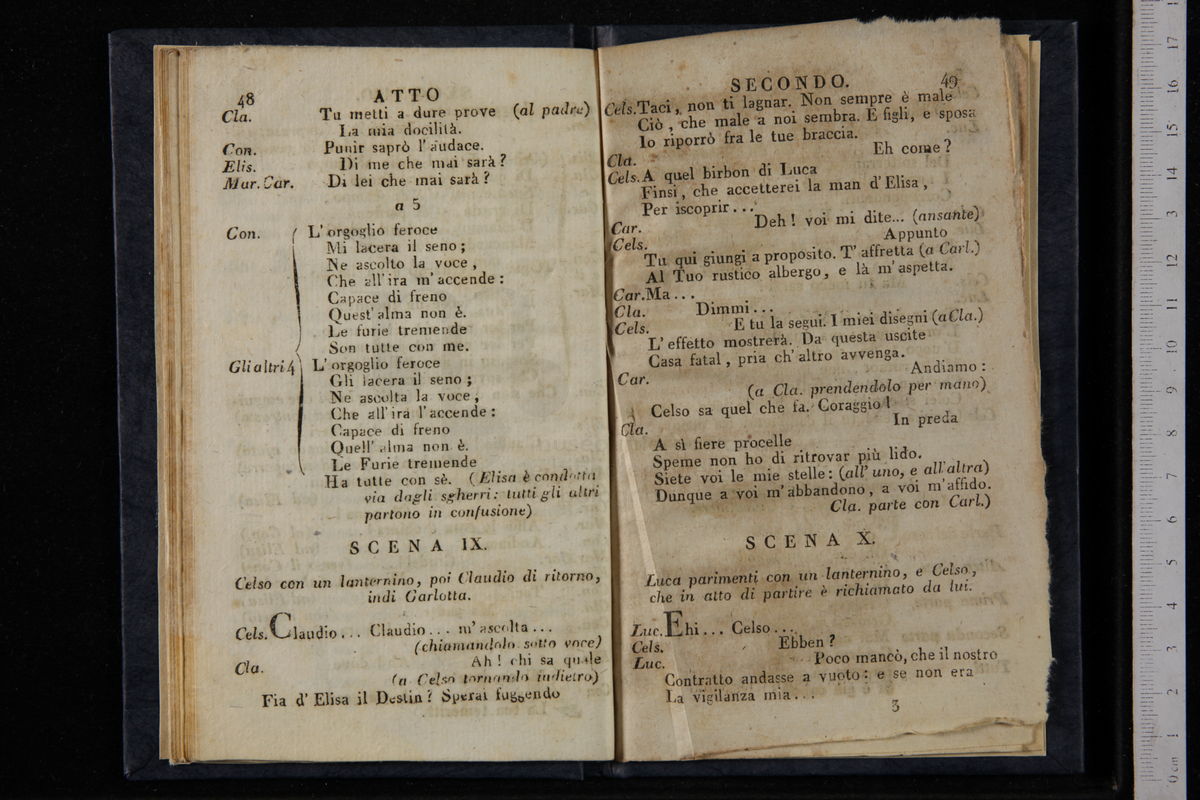 48 ATTO
Cla. Tu metti a dure prove (al padre)
La mia docilità.
Con. Punir saprò l'audace.
Elis. Di me che mai sarà?
Mar. Car. Di lei che mai sarà?
a 5
Con. L'orgoglio feroce
Mi lacera il seno;
Ne ascolto la voce,
Che all'ira m'accende:
Capace di freno
Quest'alma non è.
Le furie tremende
Son tutte con me.
Gli altri 4 L'orgoglio feroce
Gli lacera il seno;
Ne ascolta la voce,
Che all'ira l'accende:
Capace di freno
Quell'alma non è.
Le Furie tremende
Ha tutte con sè. (Elisa è condotta
via dagli sgherri: tutti gli altri
partono in confusione)
SCENA IX.
Celso con un lanternino, poi Claudio di ritorno,
indi Carlotta.
Cels. Claudio... Claudio... m'ascolta...
(chiamandolo sotto voce)
Cla. Ah! chi sa quale
(a Celso tornando indietro)
Fia d'Elisa il Destin? Sperai fuggendo
SECONDO. 49
Cels. Taci, non ti lagnar. Non sempre è male
Ciò, che male a noi sembra. E figli, e sposa
Io riporrò fra le tue braccia.
Cla. Eh come?
Cels. A quel birbon di Luca
Finsi, che accetterei la man d'Elisa,
Per iscoprir...
Car. Deh! voi mi dite... (ansante)
Cels. Appunto
Tu qui giungi a proposito. T'affretta (a Carl.)
Al Tuo rustico albergo, e là m'aspetta.
Car. Ma...
Cla. Dimmi...
Cels. E tu la segui. I miei disegni (a Cla.)
L'effetto mostrerà. Da questa uscite
Casa fatal, pria ch'altro avvenga.
Car. Andiamo:
(a Cla. prendendolo per mano)
Celso sa quel che fa. Coraggio!
Cla. In preda
A sì fiere procelle
Speme non ho di ritrovar più lido.
Siete voi le mie stelle: (all'uno, e all'altra)
Dunque a voi m'abbandono, a voi m'affido.
Cla. parte con Carl.)
SCENA X.
Luca parimenti con un lanternino, e Celso,
che in atto di partire è richiamato da lui.
Luc. Ehi... Celso...
Cels. Ebben?
Luc. Poco mancò, che il nostro
Contratto andasse a vuoto: e se non era
La vigilanza mia...
3